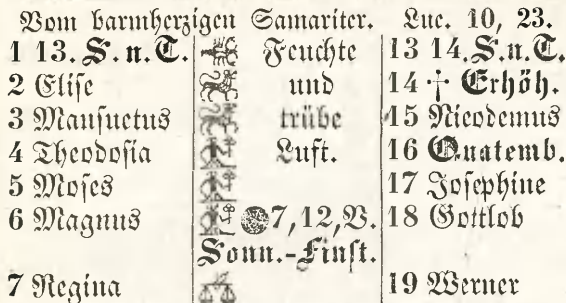 Vom barmherzigen Samariter. Luc. 10, 23.
1 13. S. n. T. Feuchte 13 14. S. n. T.
2 Elise und 14 † Erhöh.
3 Mansuetus trübe 15 Nicodemus
4 Theodosia Luft. 16 Quatemb.
5 Moses 17 Josephine
6 Magnus 7,12,V. 18 Gottlob
Sonn.-Finst.
7 Regina 19 Werner